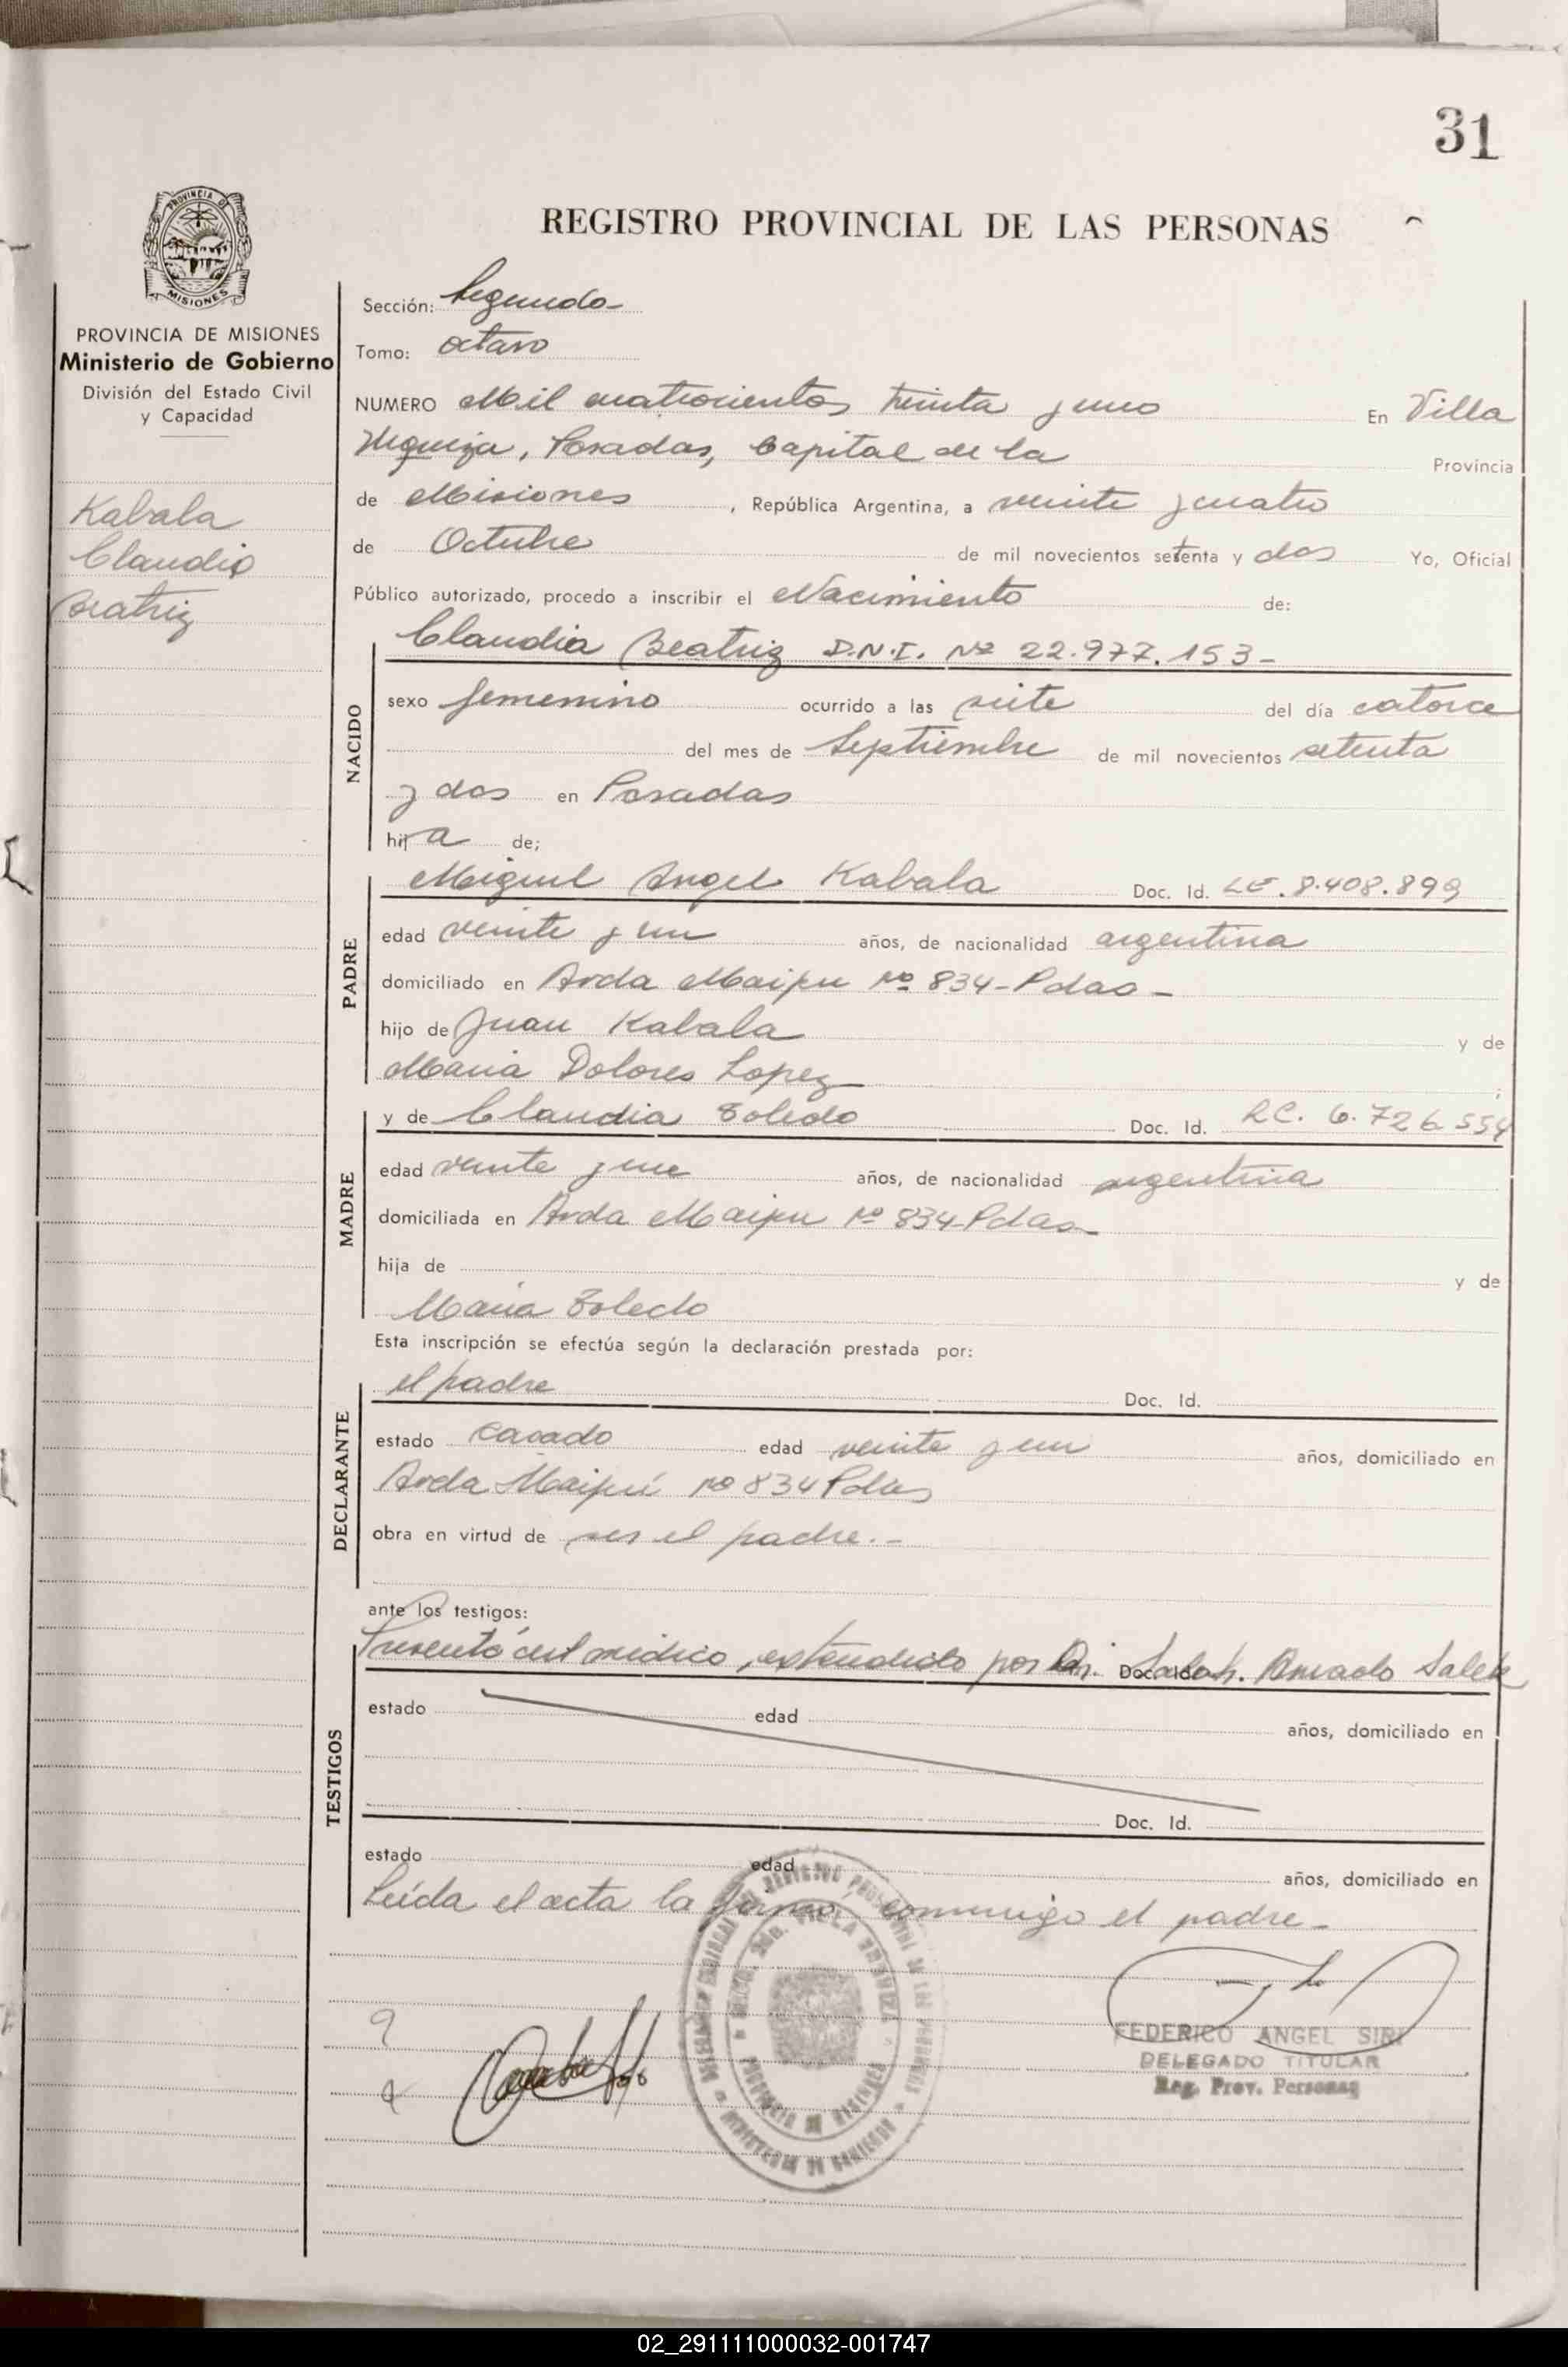 31
REGISTRO PROVINCIAL DE LAS PERSONAS
PROVINCIA DE MISIONES
Ministerio de Gobierno
División del Estado Civil
y Capacidad
Kabala
Claudia
Beatriz
Sección: Segunda
Tomo: octavo
NUMERO Mil cuatrocientos treinta y uno En Villa
Urquiza, Posadas, Capital de la Provincia
de Misiones, República Argentina, a veinte y cuatro
de Octubre de mil novecientos setenta y dos Yo, Oficial
Público autorizado, procedo a inscribir el Nacimiento de:
NACIDO
Claudia Beatriz D.N.I. Nº 22.977.153-
sexo femenino ocurrido a las siete del día catorce
del mes de Septiembre de mil novecientos setenta
y dos en Posadas
hija de;
PADRE
Miguel Angel Kabala Doc. Id. LE. 8.408.899
edad veinte y un años, de nacionalidad argentina
domiciliado en Avda Maipu Nº 834-Pdas-
hijo de Juan Kabala y de
Maria Dolores Lopez ;
MADRE
y de Claudia Toledo Doc. Id. LC. 6.726.554
edad veinte y un años, de nacionalidad argentina
domiciliada en Avda Maipu Nº 834-Pdas-
hija de y de
Maria Toledo
Esta inscripción se efectúa según la declaración prestada por:
DECLARANTE
el padre Doc. Id.
estado casado edad veinte y un años, domiciliado en
Avda Maipú Nº 834 Pdas
obra en virtud de ser el padre.-
ante los testigos:
TESTIGOS
Presentó cert médico, extendido por Dr. Amado Salek
estado edad años, domiciliado en
Doc. Id.
estado edad años, domiciliado en
Leída el acta la firma, conmigo el padre-
FEDERICO ANGEL SIRI
DELEGADO TITULAR
Reg. Prov. Personas
02_291111000032-001747